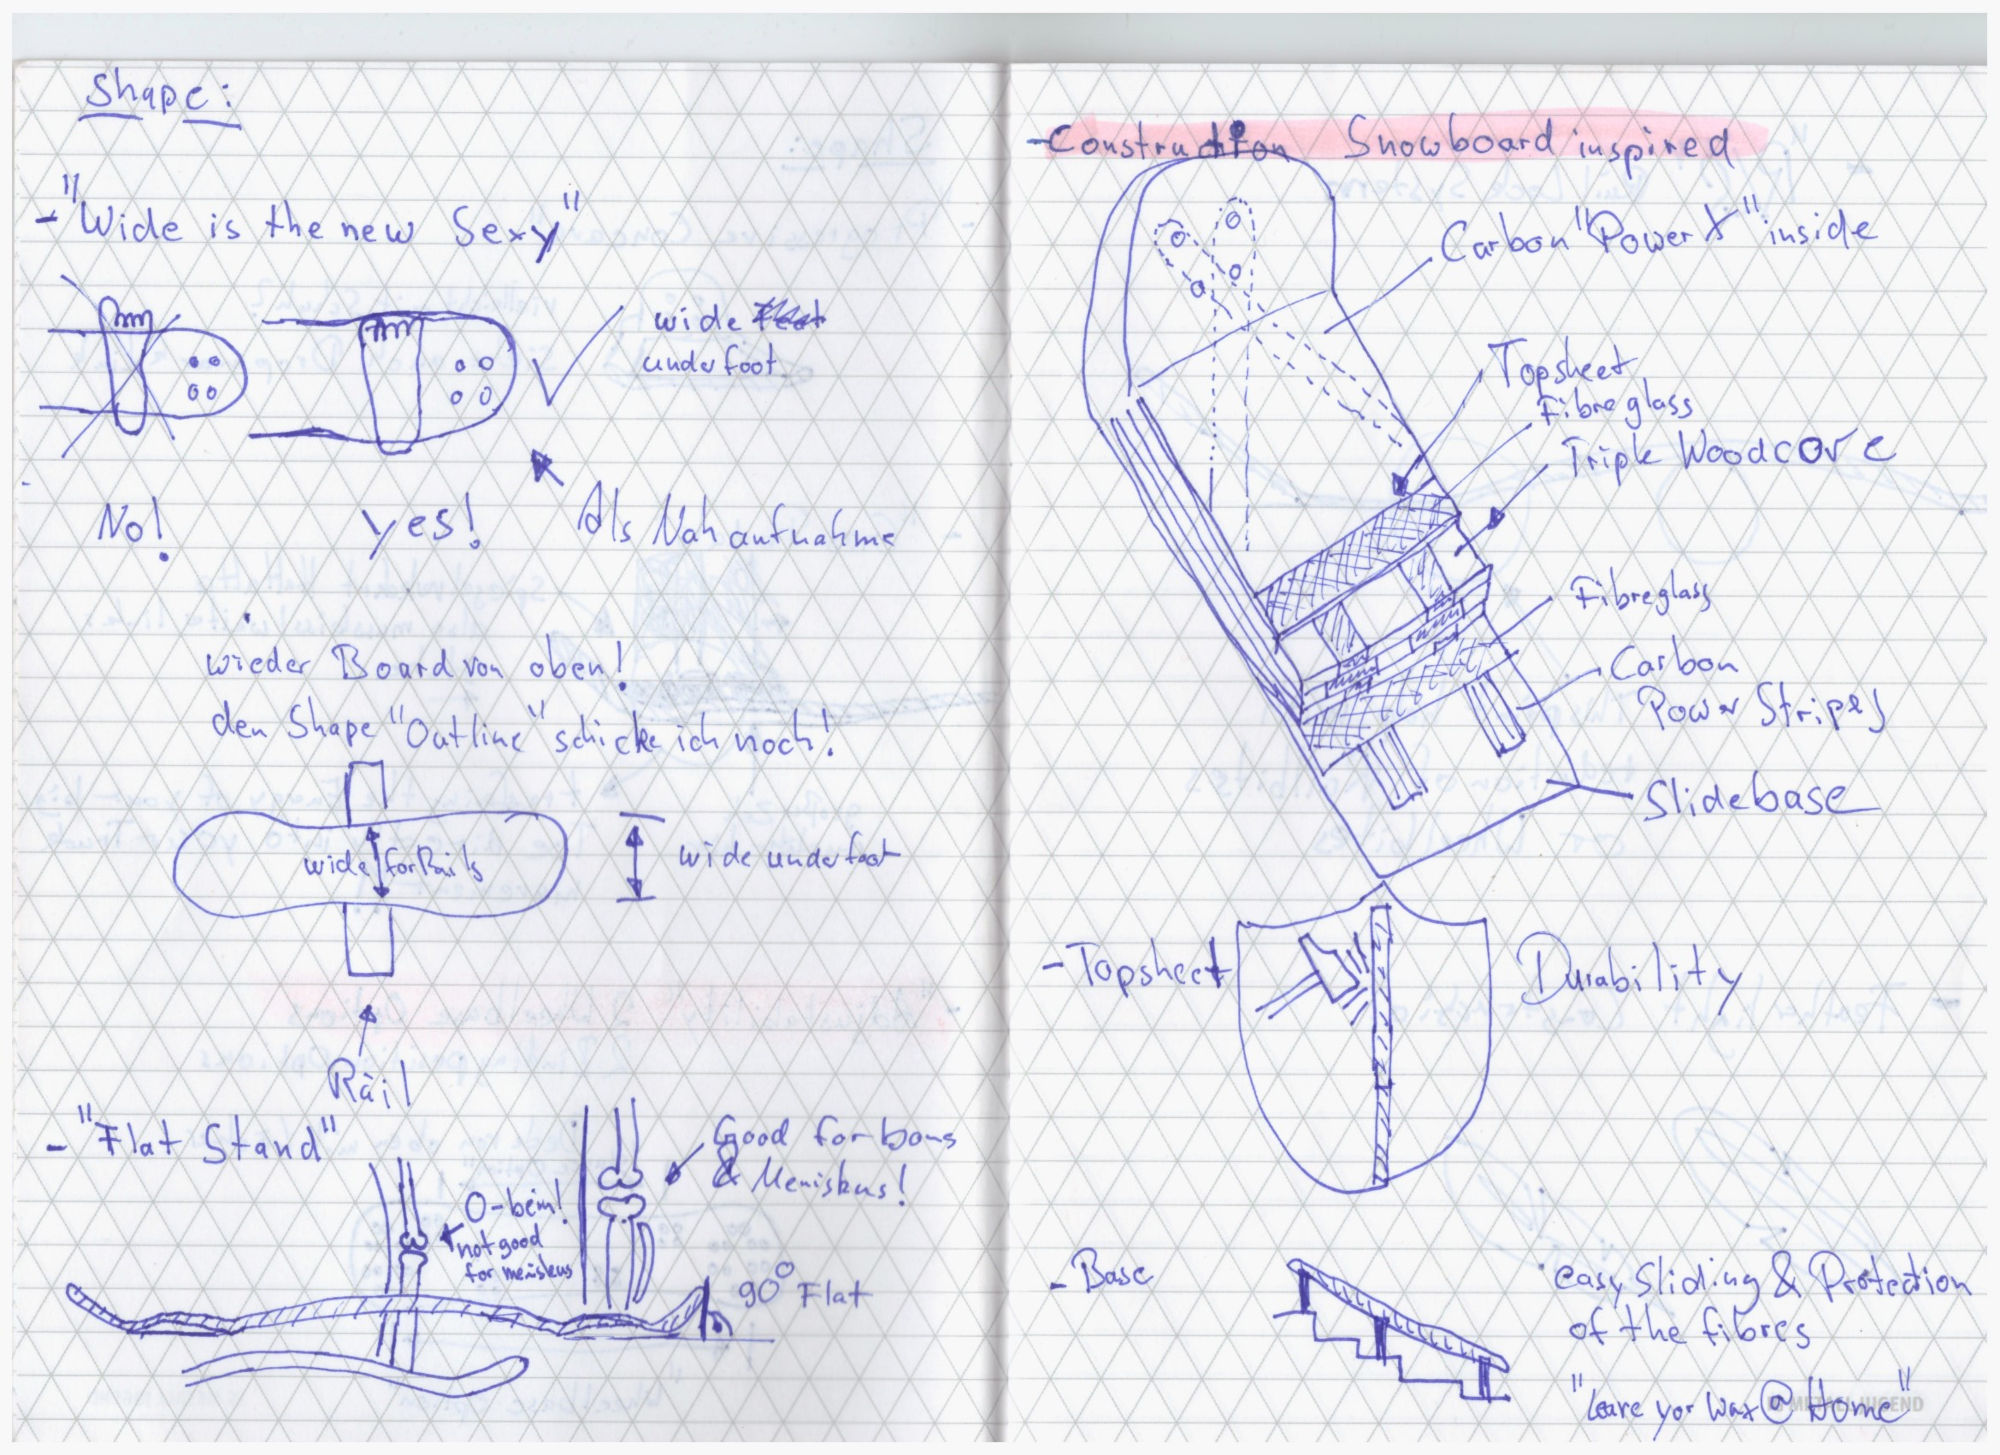 Shape:
- "Wide is the new Sexy"
wide
underfoot
No!
yes!
Als Nahaufnahme
wieder Board von oben!
den Shape "Outline" schicke ich noch!
wide for Rails
wide underfoot
Rail
- "Flat Stand"
O-bein!
not good
for meniskus
Good for bons
& Meniskus!
90° Flat
- Construction Snowboard inspired
Carbon "Power X" inside
Topsheet
Fibreglass
Triple Woodcore
Fibreglass
Carbon
Power Stripes
Slidebase
- Topsheet
Durability
- Base
easy Sliding & Protection
of the fibres
"Leave yor Wax @ Home"